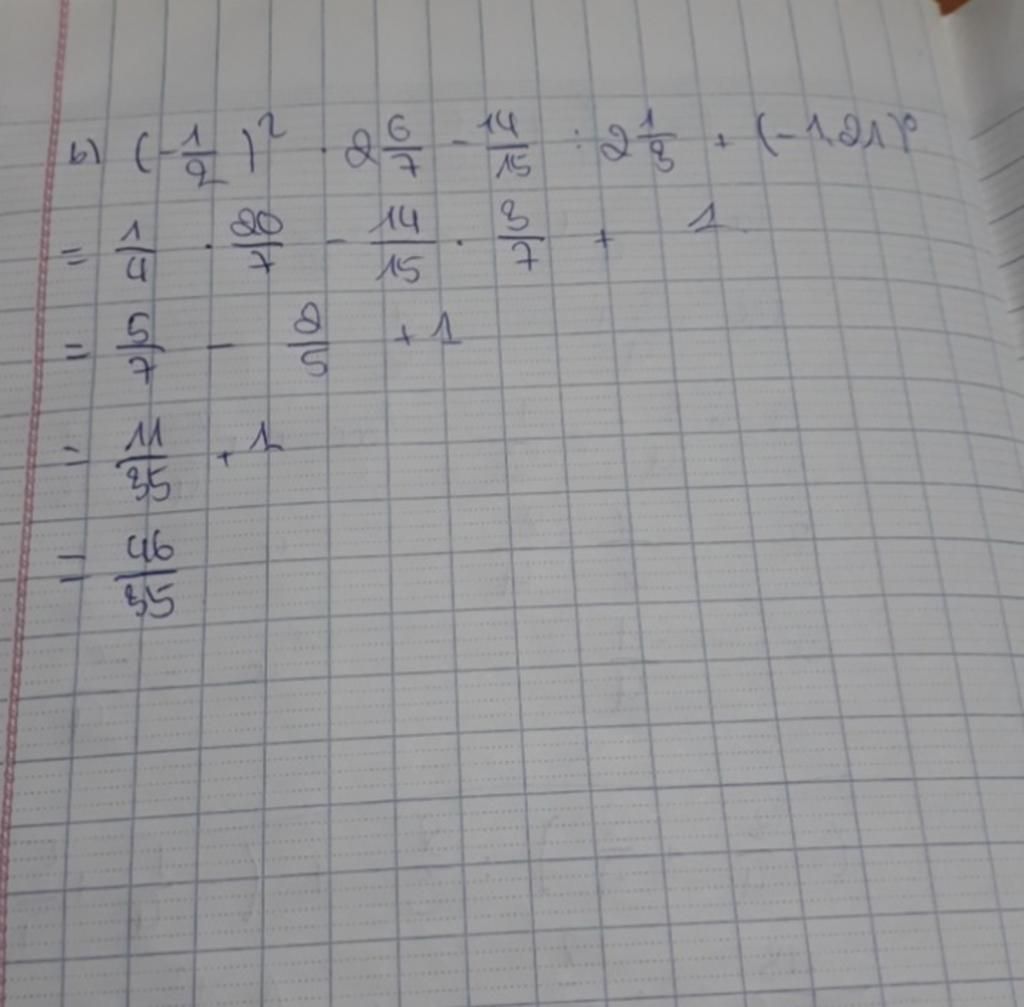 b) (-1/2)² . 2 6/7 - 14/15 : 2 1/3 + (-1,21)⁰
= 1/4 . 20/7 - 14/15 . 3/7 + 1
= 5/7 - 2/5 + 1
= 11/35 + 1
= 46/35